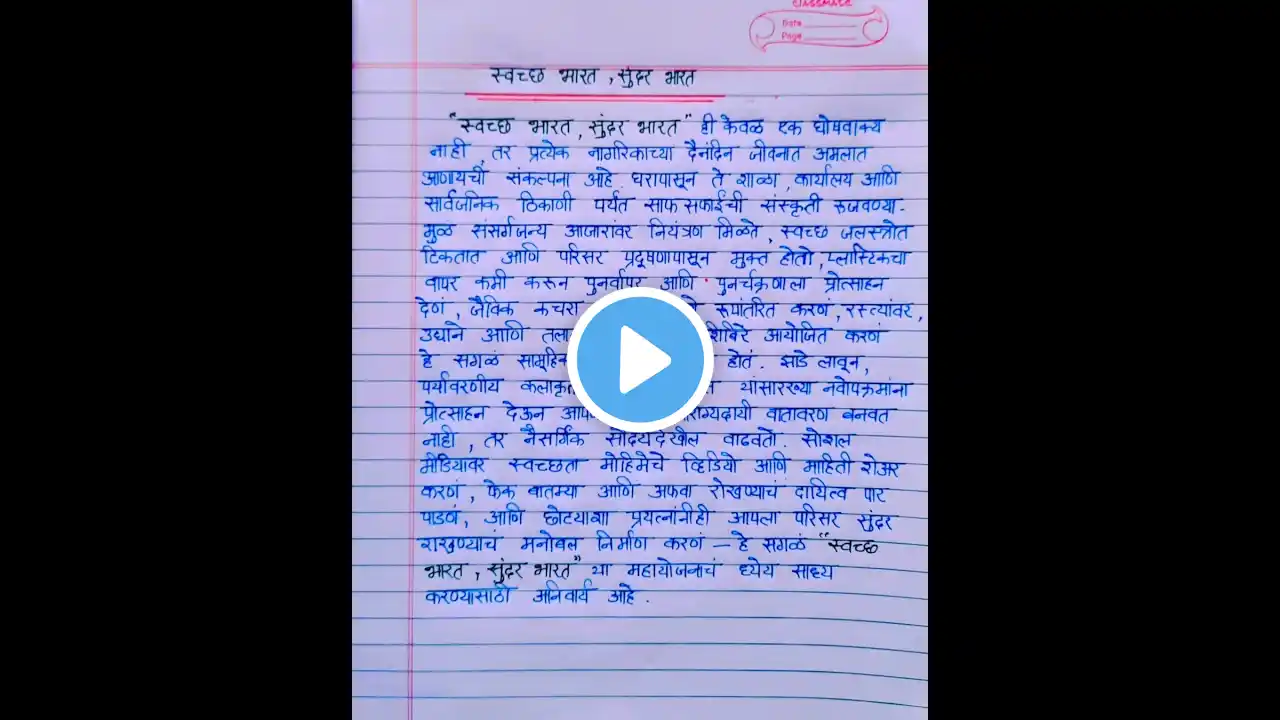 classmate
Date
Page
स्वच्छ भारत , सुंदर भारत
"स्वच्छ भारत , सुंदर भारत" ही केवळ एक घोषवाक्य
नाही , तर प्रत्येक नागरिकाच्या दैनंदिन जीवनात अमलात
आणायची संकल्पना आहे. घरापासून ते शाळा , कार्यालय आणि
सार्वजनिक ठिकाणी पर्यंत साफ सफाईची संस्कृती रुजवण्या-
मुळे संसर्गजन्य आजारांवर नियंत्रण मिळते , स्वच्छ जलस्त्रोत
टिकतात आणि परिसर प्रदूषणापासून मुक्त होतो , प्लास्टिकचा
वापर कमी करून पुनर्वापर आणि पुनर्चक्रणाला प्रोत्साहन
देणं , जैविक कचरा रूपांतरित करणं , रस्त्यांवर ,
उद्याने आणि शिबिरे आयोजित करणं
हे सगळं सामूहिक होतं . झाडे लावून ,
पर्यावरणीय यांसारख्या नवोपक्रमांना
प्रोत्साहन देऊन वातावरण बनवत
नाही , तर नैसर्गिक सौंदर्यदेखील वाढवतो . सोशल
मीडियावर स्वच्छता मोहिमेचे व्हिडियो आणि माहिती शेअर
करणं , फेक बातम्या आणि अफवा रोखण्याचं दायित्व पार
पाडणं , आणि छोट्याशा प्रयत्नांनीही आपला परिसर सुंदर
राखण्याचं मनोबल निर्माण करणं – हे सगळं "स्वच्छ
भारत , सुंदर भारत" या महायोजनाचं ध्येय साध्य
करण्यासाठी अनिवार्य आहे .